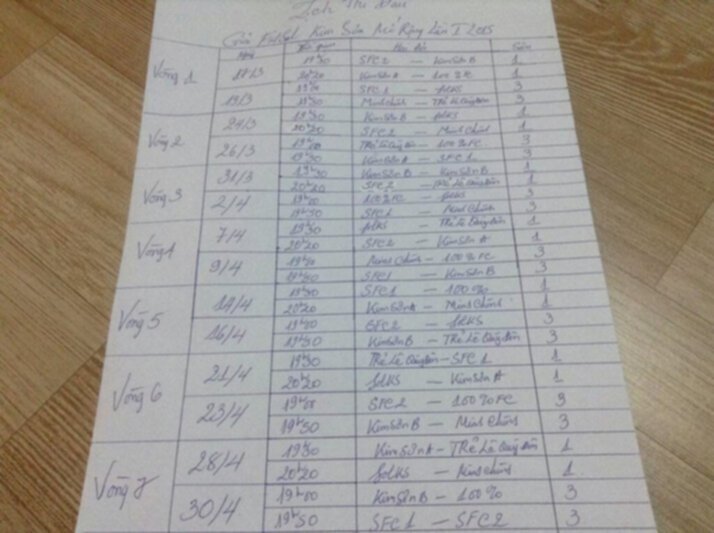 Lịch Thi Đấu
Giải Futsal Kim Sơn Mở Rộng Lần I 2015
Vòng 1 17/3 19h30 SFC2 — Kim Sơn B 1
20h20 Kim Sơn A — 100% FC 1
19/3 19h00 SFC1 — 3
19h50 Minh Chính — Trẻ Lê Quý Đôn 3
Vòng 2 24/3 19h30 Kim Sơn B — 1
20h20 SFC2 — Minh Chính 1
26/3 19h00 Trẻ Lê Quý Đôn — 100% FC 3
19h50 Kim Sơn A — SFC1 3
Vòng 3 31/3 19h30 Kim Sơn A — Kim Sơn B 1
20h20 SFC2 — Trẻ Lê Quý Đôn 1
2/4 19h00 100% FC — 3
19h50 SFC1 — Minh Chính 3
Vòng 4 7/4 19h30 — Trẻ Lê Quý Đôn 1
20h20 SFC2 — Kim Sơn A 1
9/4 19h00 Minh Chính — 100% FC 3
19h50 SFC1 — Kim Sơn B 3
Vòng 5 14/4 19h30 SFC1 — 100% 1
20h20 Kim Sơn A — Minh Chính 1
16/4 19h00 SFC2 — 3
19h50 Kim Sơn B — Trẻ Lê Quý Đôn 3
Vòng 6 21/4 19h30 Trẻ Lê Quý Đôn — SFC1 1
20h20 — Kim Sơn A 1
23/4 19h00 SFC2 — 100% FC 3
19h50 Kim Sơn B — Minh Chính 3
Vòng 7 28/4 19h30 Kim Sơn A — Trẻ Lê Quý Đôn 1
20h20 — Minh Chính 1
30/4 19h00 Kim Sơn B — 100% 3
19h50 SFC1 — SFC2 3